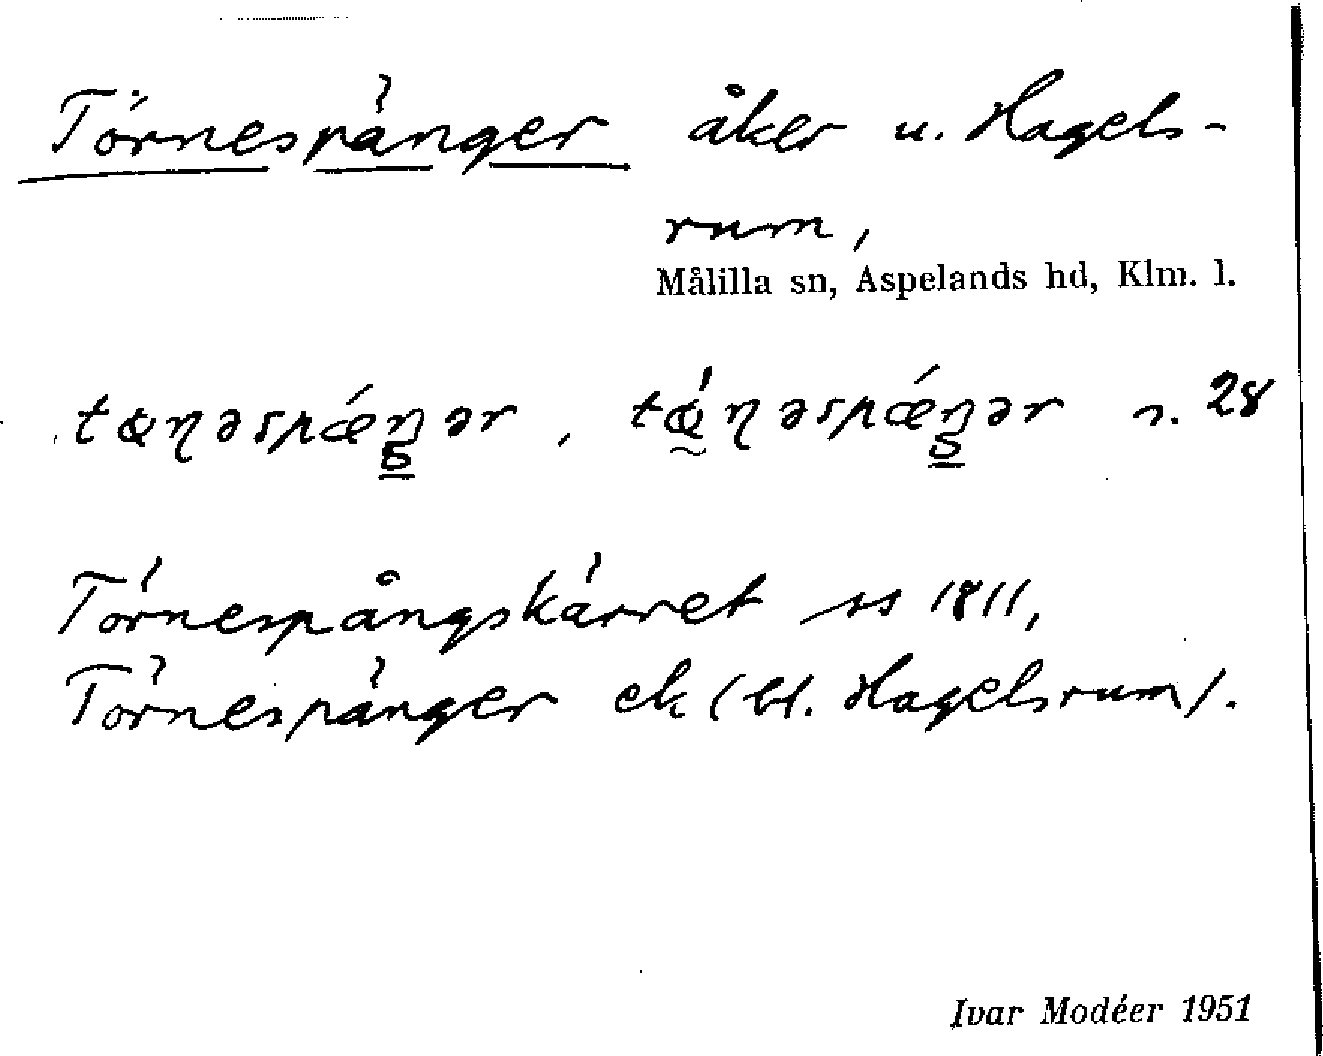 Törnespänger åker u. Hagels-
rum,
Målilla sn, Aspelands hd, Klm. l.
tɷɳəspǽŋər, tɷ́ɳəspǽŋər s. 28
Törnespångskärret ss 1811,
Törnespänger ek (bl. Hagelsrum).
Ivar Modéer 1951